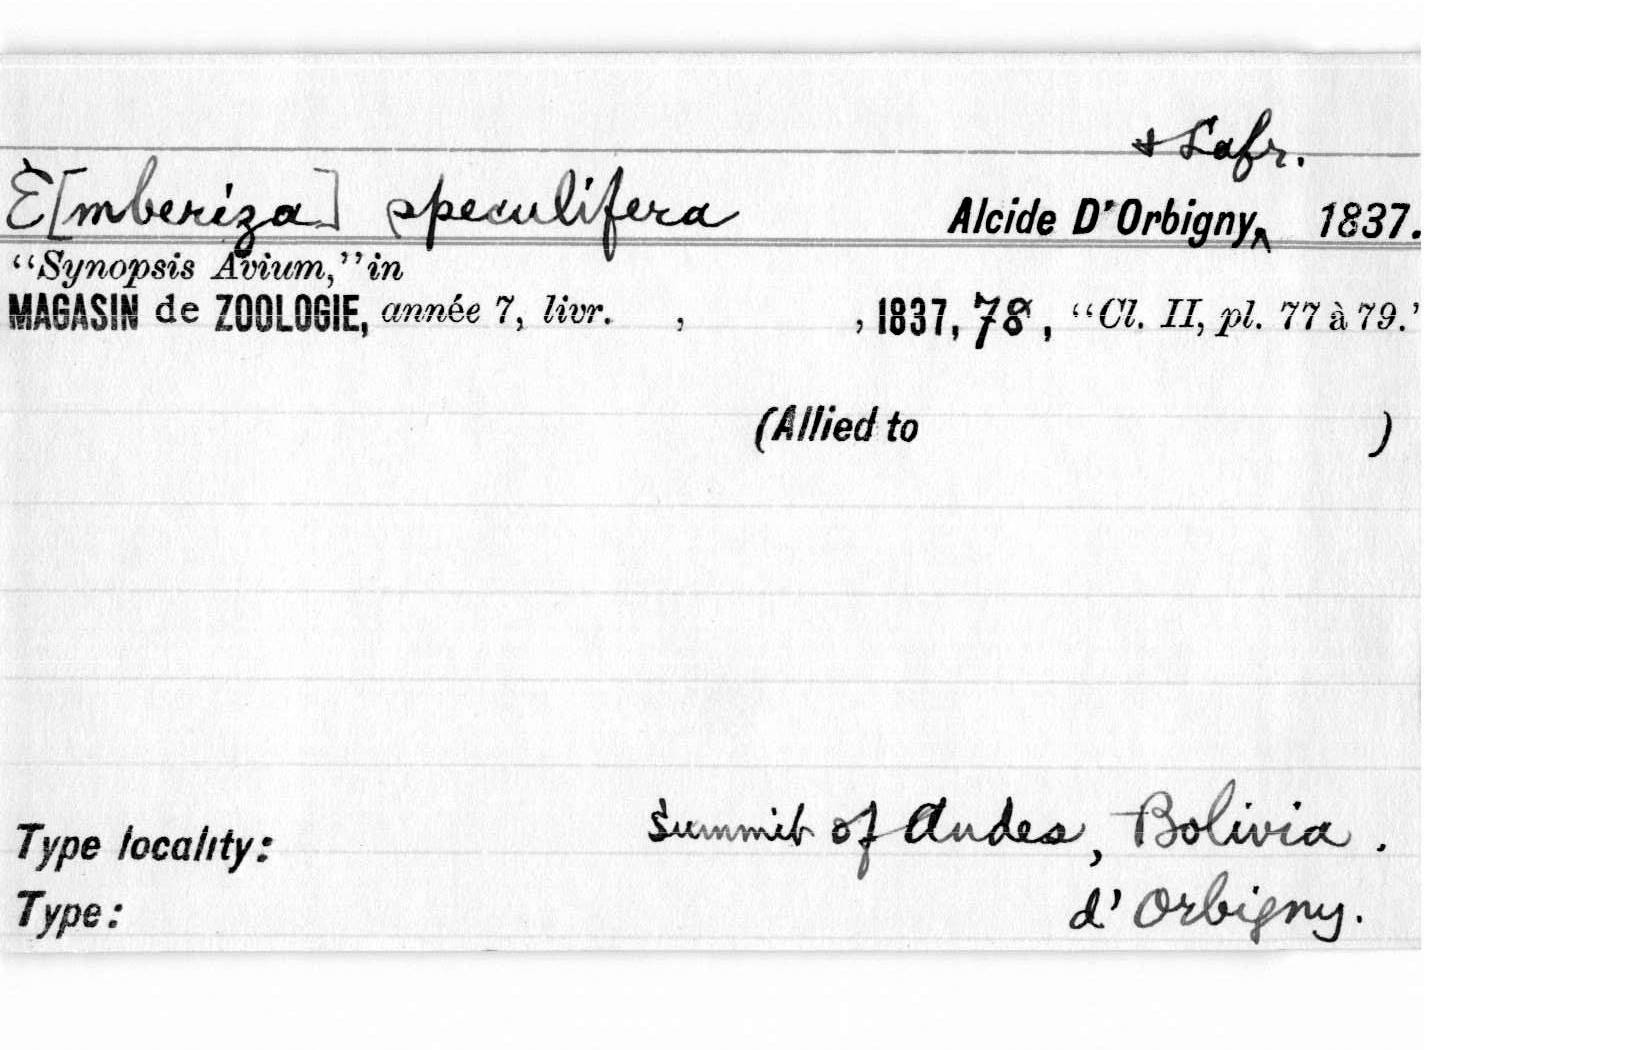 & Lafr.
E[mberiza] speculifera Alcide D'Orbigny‸ 1837.
“Synopsis Avium,” in
MAGASIN de ZOOLOGIE, année 7, livr. , , 1837, 78, “Cl. II, pl. 77 à 79.’
(Allied to )
Type locality: Summit of Andes, Bolivia.
Type: d'Orbigny.